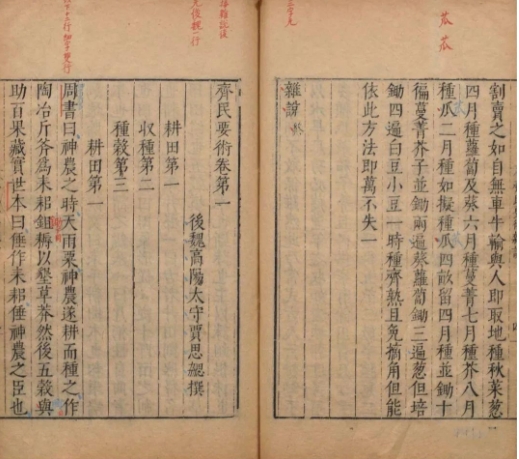 割賣之如自無車牛輸與人即取地種秋菜葱
四月種蘿蔔及葵六月種蔓菁七月種芥八月
種瓜二月種如擬種瓜四畝留四月種並鋤十
徧蔓菁芥子並鋤兩遍葵蘿蔔鋤三遍葱但培
鋤四遍白豆小豆一時種齊熟且免摘角但能
依此方法即萬不失一
雜說
齊民要術卷第一
後魏高陽太守賈思勰撰
耕田第一
收種第二
種穀第三
耕田第一
周書曰神農之時天雨粟神農遂耕而種之作
陶冶斤斧爲耒耜鉏耨以墾草莽然後五穀興
助百果藏實世本曰倕作耒耜倕神農之臣也